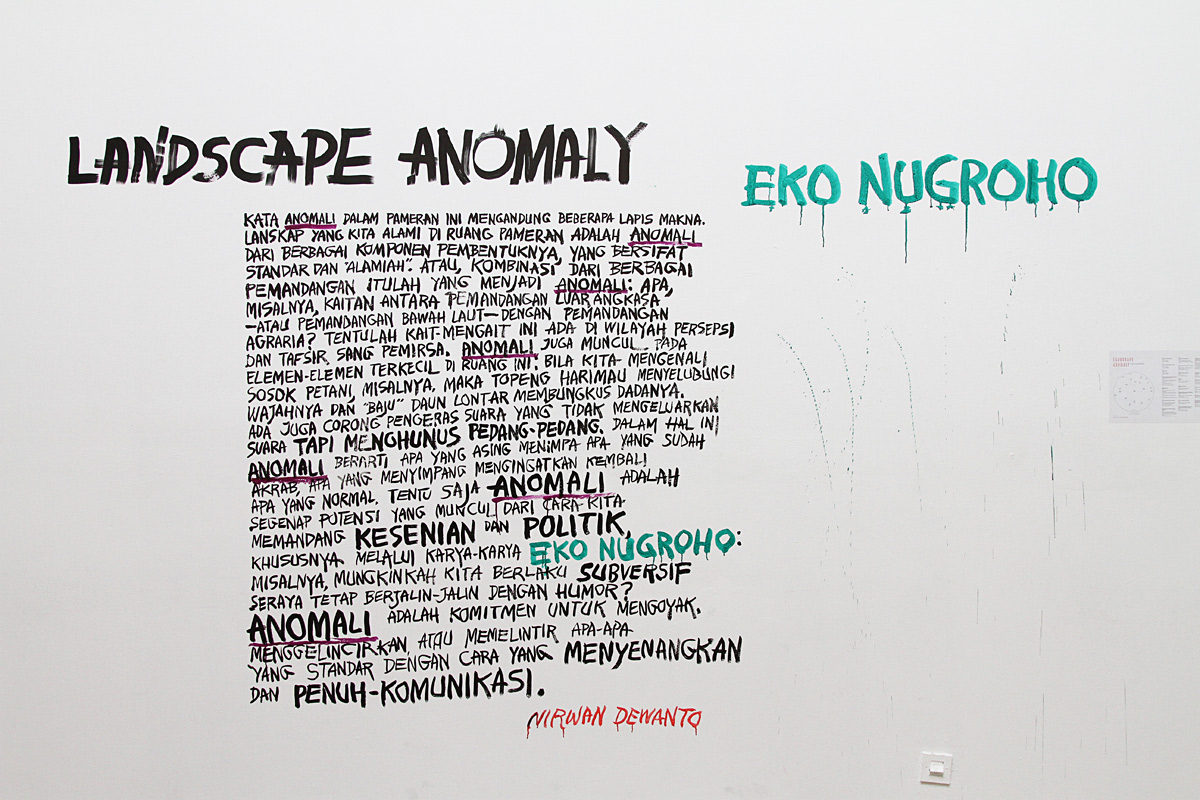 LANDSCAPE ANOMALY
EKO NUGROHO
KATA ANOMALI DALAM PAMERAN INI MENGANDUNG BEBERAPA LAPIS MAKNA.
LANSKAP YANG KITA ALAMI DI RUANG PAMERAN ADALAH ANOMALI
DARI BERBAGAI KOMPONEN PEMBENTUKNYA, YANG BERSIFAT
STANDAR DAN "ALAMIAH". ATAU, KOMBINASI DARI BERBAGAI
PEMANDANGAN ITULAH YANG MENJADI ANOMALI: APA,
MISALNYA, KAITAN ANTARA PEMANDANGAN LUAR ANGKASA
—ATAU PEMANDANGAN BAWAH LAUT—DENGAN PEMANDANGAN
AGRARIA? TENTULAH KAIT-MENGAIT INI ADA DI WILAYAH PERSEPSI
DAN TAFSIR SANG PEMIRSA. ANOMALI JUGA MUNCUL PADA
ELEMEN-ELEMEN TERKECIL DI RUANG INI: BILA KITA MENGENALI
SOSOK PETANI, MISALNYA, MAKA TOPENG HARIMAU MENYELUBUNGI
WAJAHNYA DAN "BAJU" DAUN LONTAR MEMBUNGKUS DADANYA.
ADA JUGA CORONG PENGERAS SUARA YANG TIDAK MENGELUARKAN
SUARA TAPI MENGHUNUS PEDANG-PEDANG. DALAM HAL INI
ANOMALI BERARTI APA YANG ASING MENIMPA APA YANG SUDAH
AKRAB, APA YANG MENYIMPANG MENGINGATKAN KEMBALI
APA YANG NORMAL. TENTU SAJA ANOMALI ADALAH
SEGENAP POTENSI YANG MUNCUL DARI CARA KITA
MEMANDANG KESENIAN DAN POLITIK,
KHUSUSNYA MELALUI KARYA-KARYA EKO NUGROHO:
MISALNYA, MUNGKINKAH KITA BERLAKU SUBVERSIF
SERAYA TETAP BERJALIN-JALIN DENGAN HUMOR?
ANOMALI ADALAH KOMITMEN UNTUK MENGOYAK,
MENGGELINCIRKAN, ATAU MEMELINTIR APA-APA
YANG STANDAR DENGAN CARA YANG MENYENANGKAN
DAN PENUH-KOMUNIKASI.
NIRWAN DEWANTO